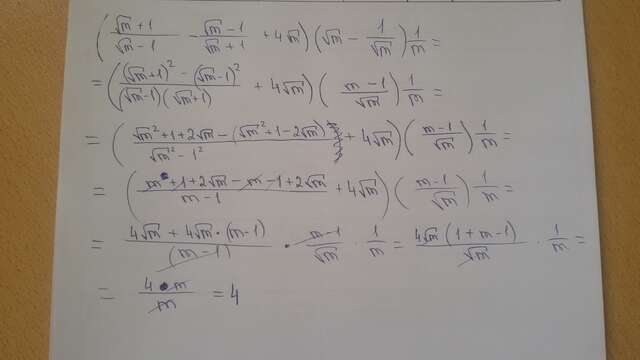 (√m+1/√m−1 − √m−1/√m+1 + 4√m)(√m − 1/√m) 1/m =
= ((√m+1)² − (√m−1)²/(√m−1)(√m+1) + 4√m)(m−1/√m) 1/m =
= (√m²+1+2√m−(√m²+1−2√m)/√m²−1² + 4√m)(m−1/√m) 1/m =
= (m+1+2√m−m−1+2√m/m−1 + 4√m)(m−1/√m) 1/m =
= 4√m+4√m·(m−1)/(m−1) · m−1/√m · 1/m = 4√m(1+m−1)/√m · 1/m =
= 4·m/m = 4